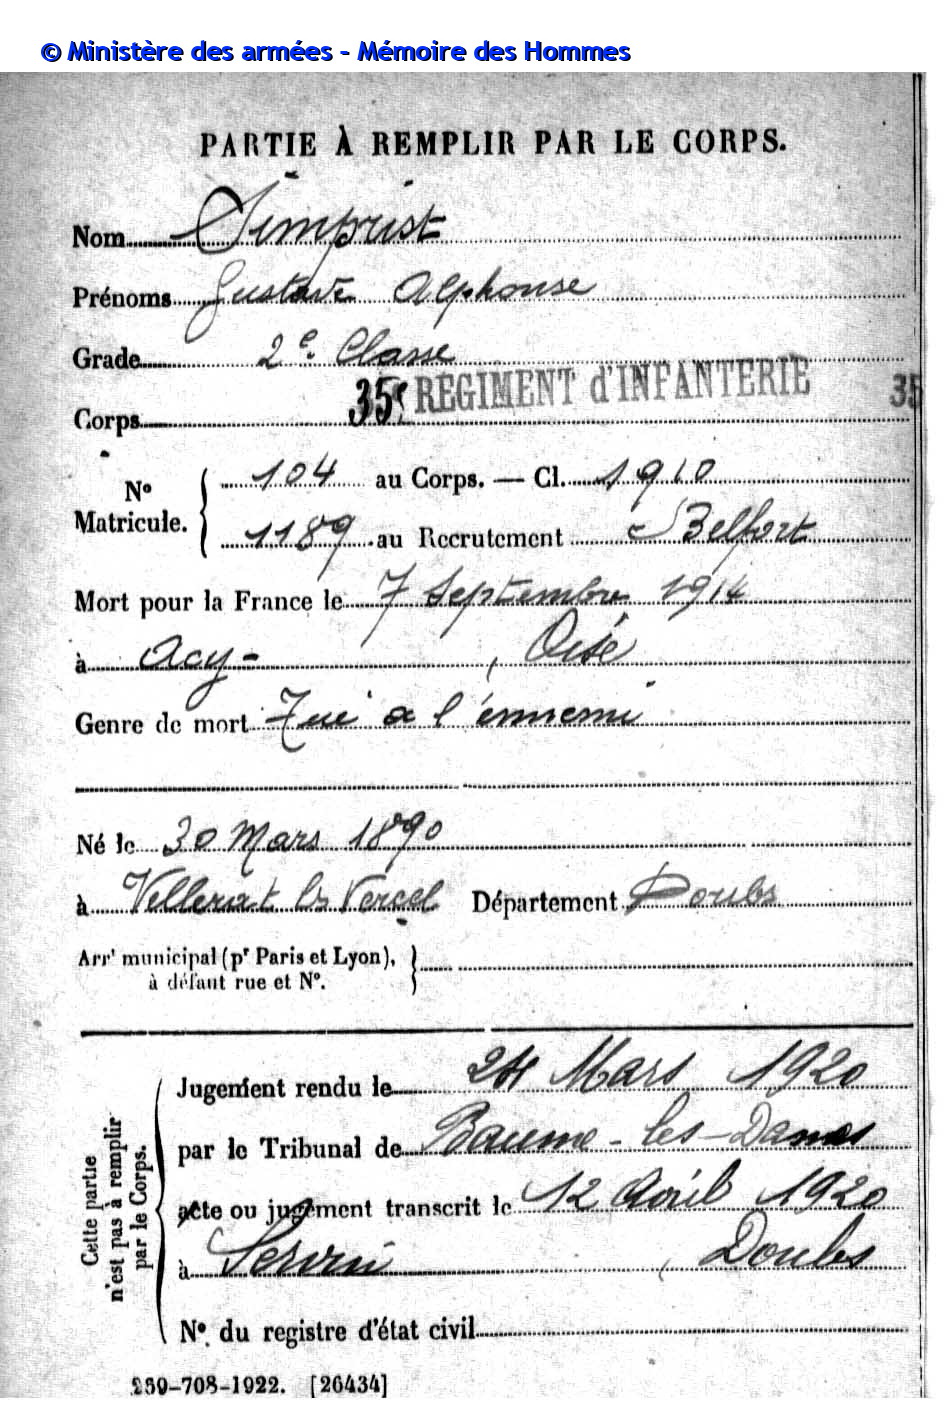 © Ministère des armées - Mémoire des Hommes
PARTIE À REMPLIR PAR LE CORPS.
Nom Simprist
Prénoms Gustave Alphonse
Grade 2e Classe
Corps 35e RÉGIMENT d'INFANTERIE 35
No Matricule. { 104 au Corps. — Cl. 1910
1189 au Recrutement Belfort
Mort pour la France le 7 Septembre 1914
à Acy - , Oise
Genre de mort Tué à l'ennemi
Né le 30 Mars 1890
à les Vercel Département Doubs
Arrt municipal (pr Paris et Lyon),
à défaut rue et No.
Cette partie n'est pas à remplir par le Corps.
Jugement rendu le 24 Mars 1920
par le Tribunal de Baume-les-Dames
acte ou jugement transcrit le 12 Avril 1920
à Servin , Doubs
No du registre d'état civil
259-708-1922. [26434]